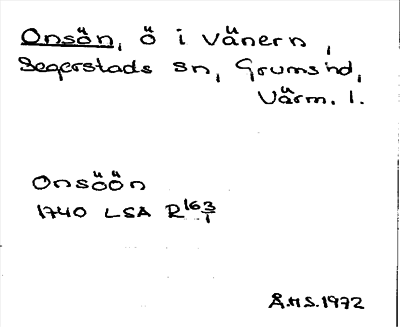 Onsön, ö i Vänern,
Segerstads sn, Grums hd,
Värm. l.
Onsöön
1740 LSA R 163/1
Å.H.S. 1972